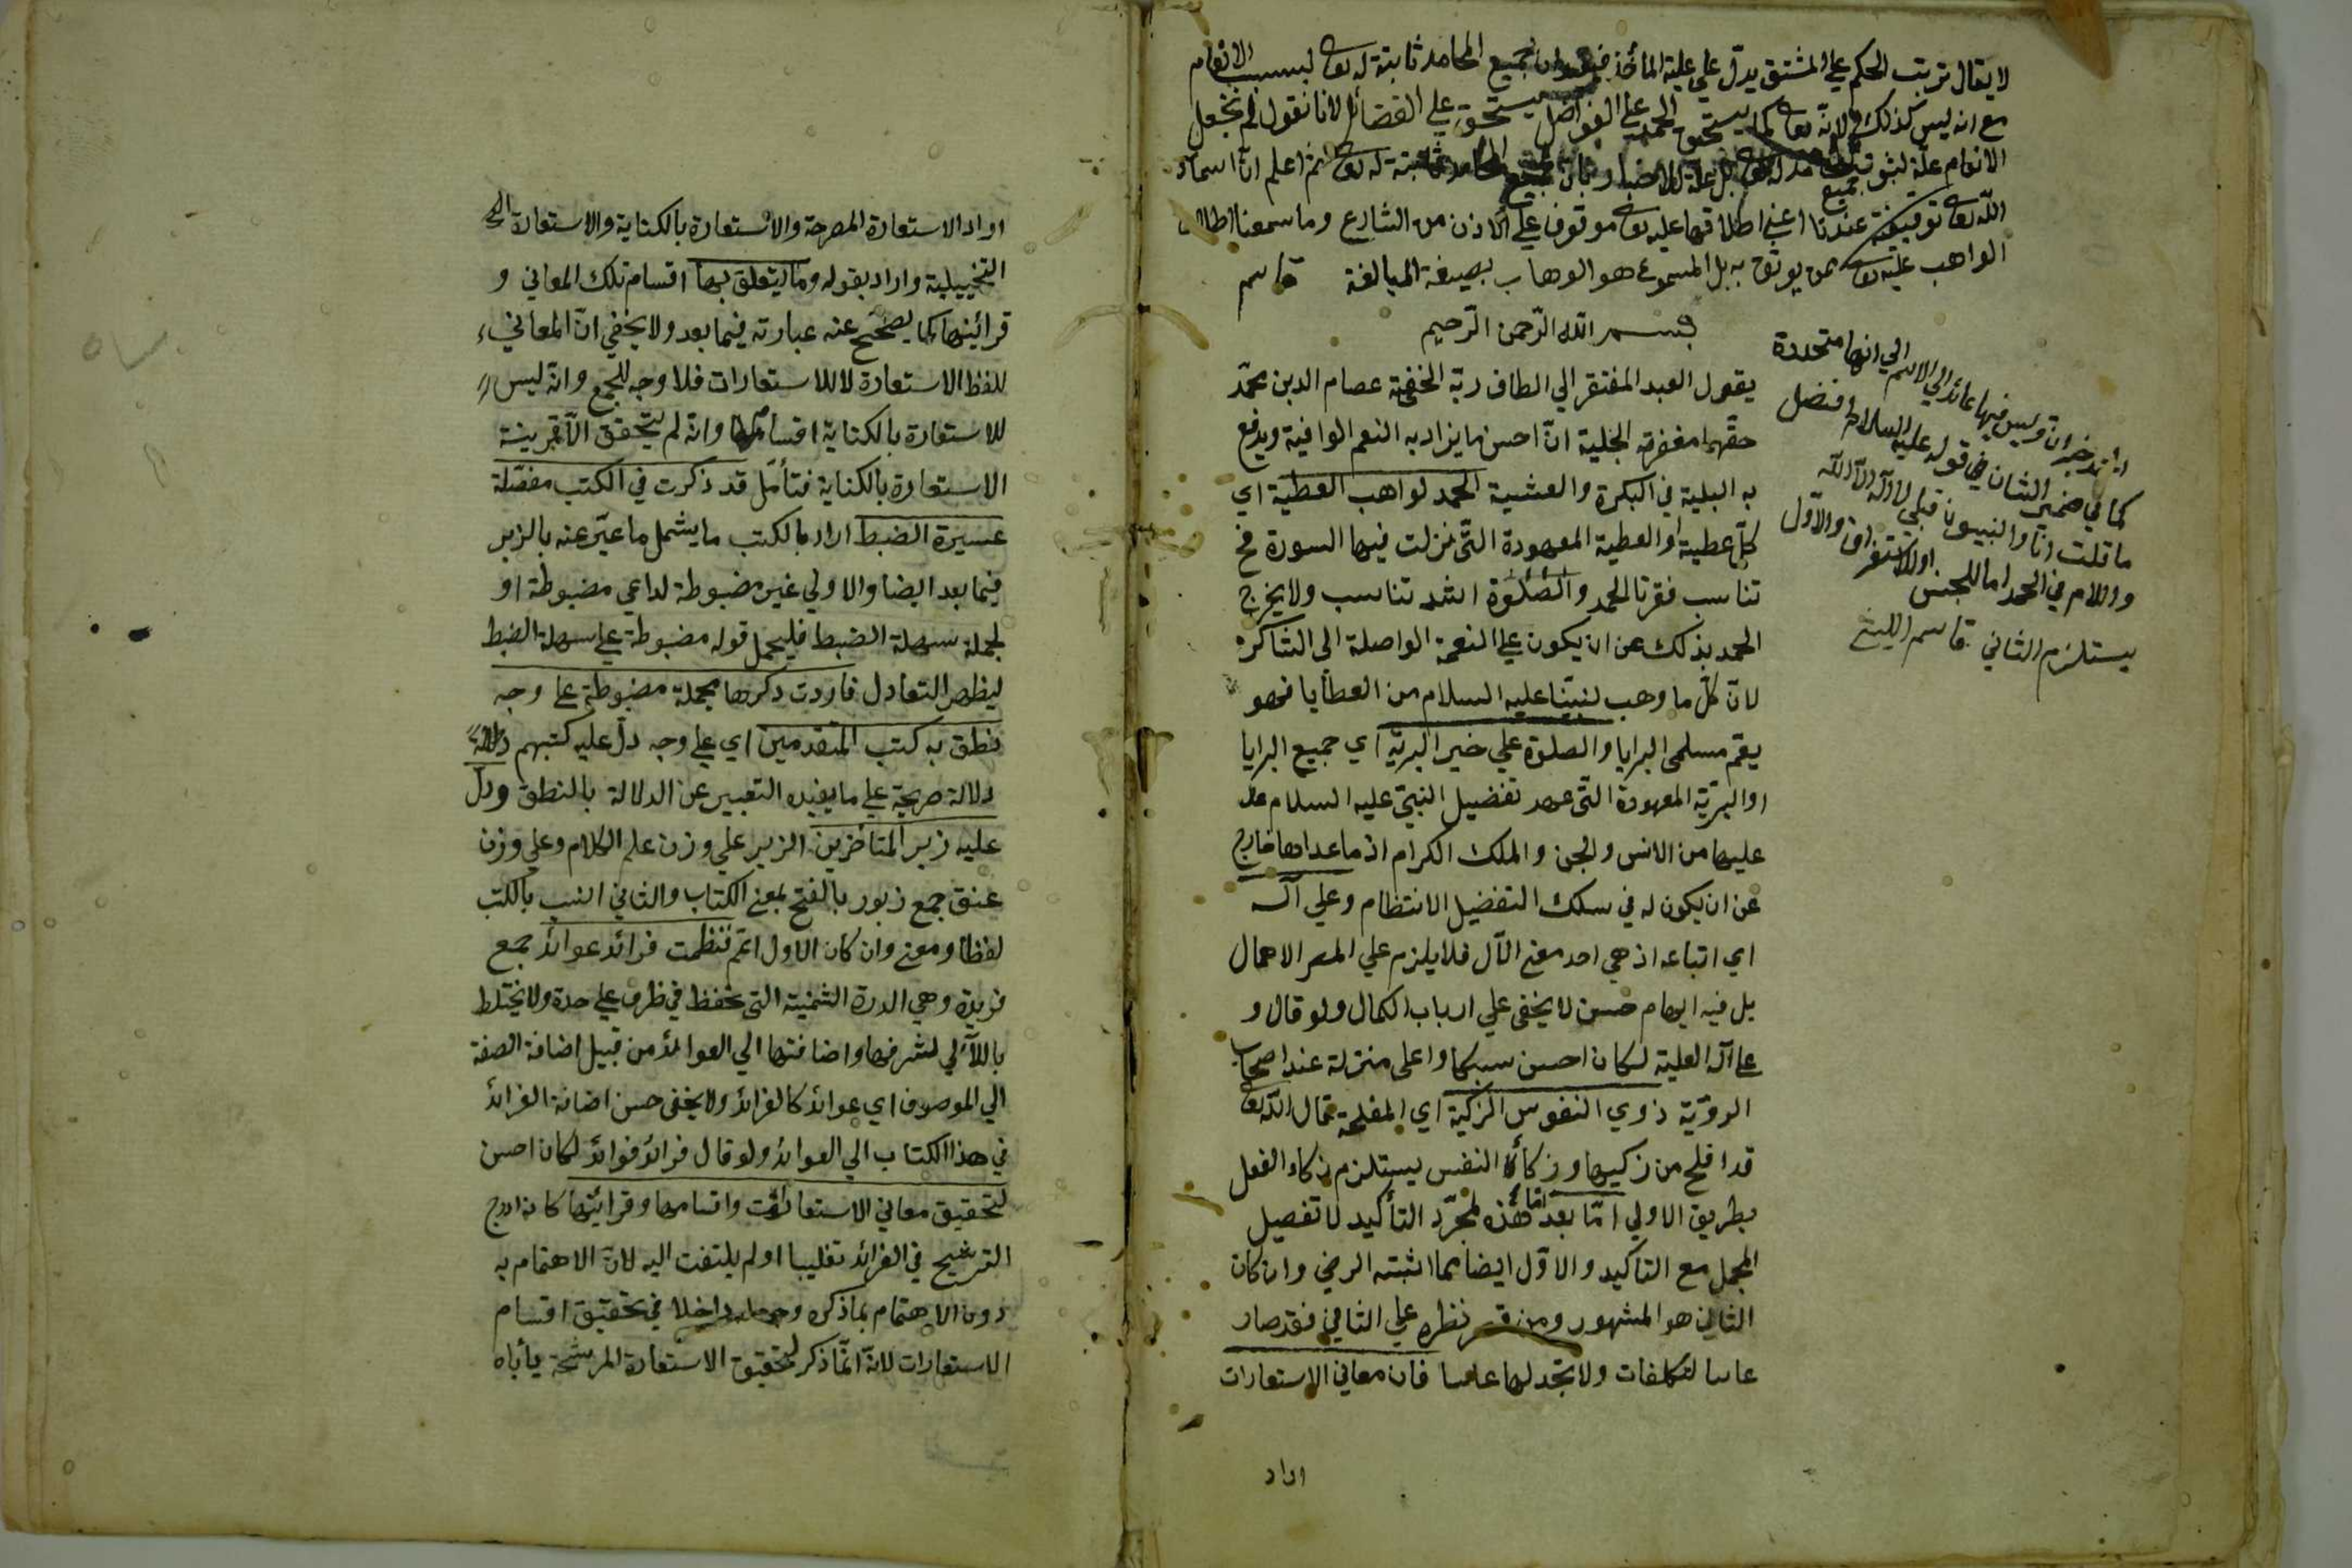 لا يقال ترتب الحكم علي المشتق يدل علي علية المأخذ جميع المحامد ثابتة له تعا لسبب الانعام
مع انه ليس كذلك لانه تعا كما يستحق الحمد علي الفواضل يستحق علي الفضائل لانا نقول لم نجعل
الانعام علة لثبوت جميع المحامد له تعا بل علة للاخبار بان جميع المحامد ثابتة له تعا ثم اعلم ان اسماء
الله تعا توقيفية عندنا اعني اطلاقها عليه تعا موقوف علي الاذن من الشارع وما سمعنا اطلاق
الواهب عليه تعا ممن يوثق به بل المسموع هو الوهاب بصيغة المبالغة قاسم
بسم الله الرحمن الرحيم
يقول العبد المفتقر الي الطاف ربه الخفية عصام الدين محمد
حقهما مغفرته الجلية ان احسن ما يزاد به النعم الوافية ويدفع
به البلية في البكرة والعشية الحمد لواهب العطية اي
كل عطية او العطية المعهودة التي نزلت فيها السورة فح
تناسب فقرتا الحمد والصلوة اشد تناسب ولا يخرج
الحمد بذلك عن ان يكون علي النعمة الواصلة الي الشاكر
لان كل ما وهب لنبينا عليه السلام من العطايا فهو
يعم مسلمي البرايا والصلوة علي خير البرية اي جميع البرايا
او البرية المعهودة التي عهد تفضيل النبي عليه السلام عل
عليها من الانس والجن والملك الكرام اذ ما عداها خارج
عن ان يكون له في سلك التفضيل الانتظام وعلي آله
اي اتباعه اذ هي احد معني الآل فلا يلزم علي المص الاهمال
بل فيه ايهام حسن لا يخفى علي ارباب الكمال ولو قال و
علي آله العلية لكان احسن سبكا واعلى منزلة عند اصحاب
الروية ذوي النفوس الزكية اي المفلحة قال الله تعا
قد افلح من زكيها وزكاء النفس يستلزم زكاء الفعل
بطريق الاولي اما بعد اما هذه لمجرد التأكيد لا تفصيل
المجمل مع التاكيد والاول ايضا مما اثبته الرضي وان كان
الثاني هو المشهور ومن قصر نظره علي الثاني فقد صار
لتكلفات ولا تجد لها فان معاني الاستعارات
اراد
ايا ند خبر ان وليس فيها عائد الي الاسم الي انها متحدة
كما في ضمير الشان في قوله عليه السلام افضل
ما قلت انا والنبيون قبلي لا اله الا الله
واللام في الحمد اما للجنس او للاستغراق والاول
يستلزم الثاني قاسم الليثي
اراد الاستعارة المصرحة والاستعارة بالكناية والاستعارة
التخييلية واراد بقوله وما يتعلق بها اقسام تلك المعاني و
قرائنها كما يصحح عنه عبارته فيما بعد ولا يخفي ان المعاني
للفظ الاستعارة لا للاستعارات فلا وجه للجمع وانه ليس
للاستعارة بالكناية اقسام وانه لم يتحقق الا قرينة
الاستعارة بالكناية فتأمل قد ذكرت في الكتب مفصلة
عسيرة الضبط اراد بالكتب ما يشمل ما عبر عنه بالزبر
فيما بعد ايضا والاولي غير مضبوطة لداعي مضبوطة او
لجملة سهلة الضبط فليحمل قوله مضبوطة علي سهلة الضبط
ليظهر التعادل فاردت ذكرها مجملة مضبوطة علي وجه
نطق به كتب المتقدمين اي علي وجه دل عليه كتبهم دلالة
دلالة صريحة علي ما يفيده التعبير عن الدلالة بالنطق ودل
عليه زبر المتأخرين الزبر علي وزن علم الكلام وعلي وزن
عنق جمع زبور بالفتح بمعني الكتاب والثاني انسب بالكتب
لفظا ومعني وان كان الاول اتم فنظمت فرائد عوائد جمع
فريدة وهي الدرة الثمينة التي تحفظ في ظرف علي حدة ولا يختلط
باللآلي لشرفها واضافتها الي العوائد من قبيل اضافة الصفة
الي الموصوف اي عوائد كالفرائد ولا يخفى حسن اضافة الفرائد
في هذا الكتاب الي العوائد ولو قال فرائد فوائد لكان احسن
لتحقيق معاني الاستعارات واقسامها وقرائنها كانه ادرج
الترشيح في الفرائد تغليبا او لم يلتفت اليه لان الاهتمام به
دون الاهتمام بما ذكره وجعله داخلا في تحقيق اقسام
الاستعارات لانه انما ذكر لتحقيق الاستعارة المرشحة يأباه